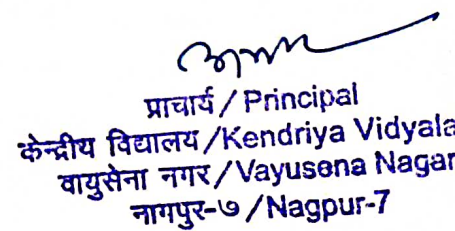 प्राचार्य / Principal
केन्द्रीय विद्यालय / Kendriya Vidyala
वायुसेना नगर / Vayusena Nagar
नागपुर-७ / Nagpur-7